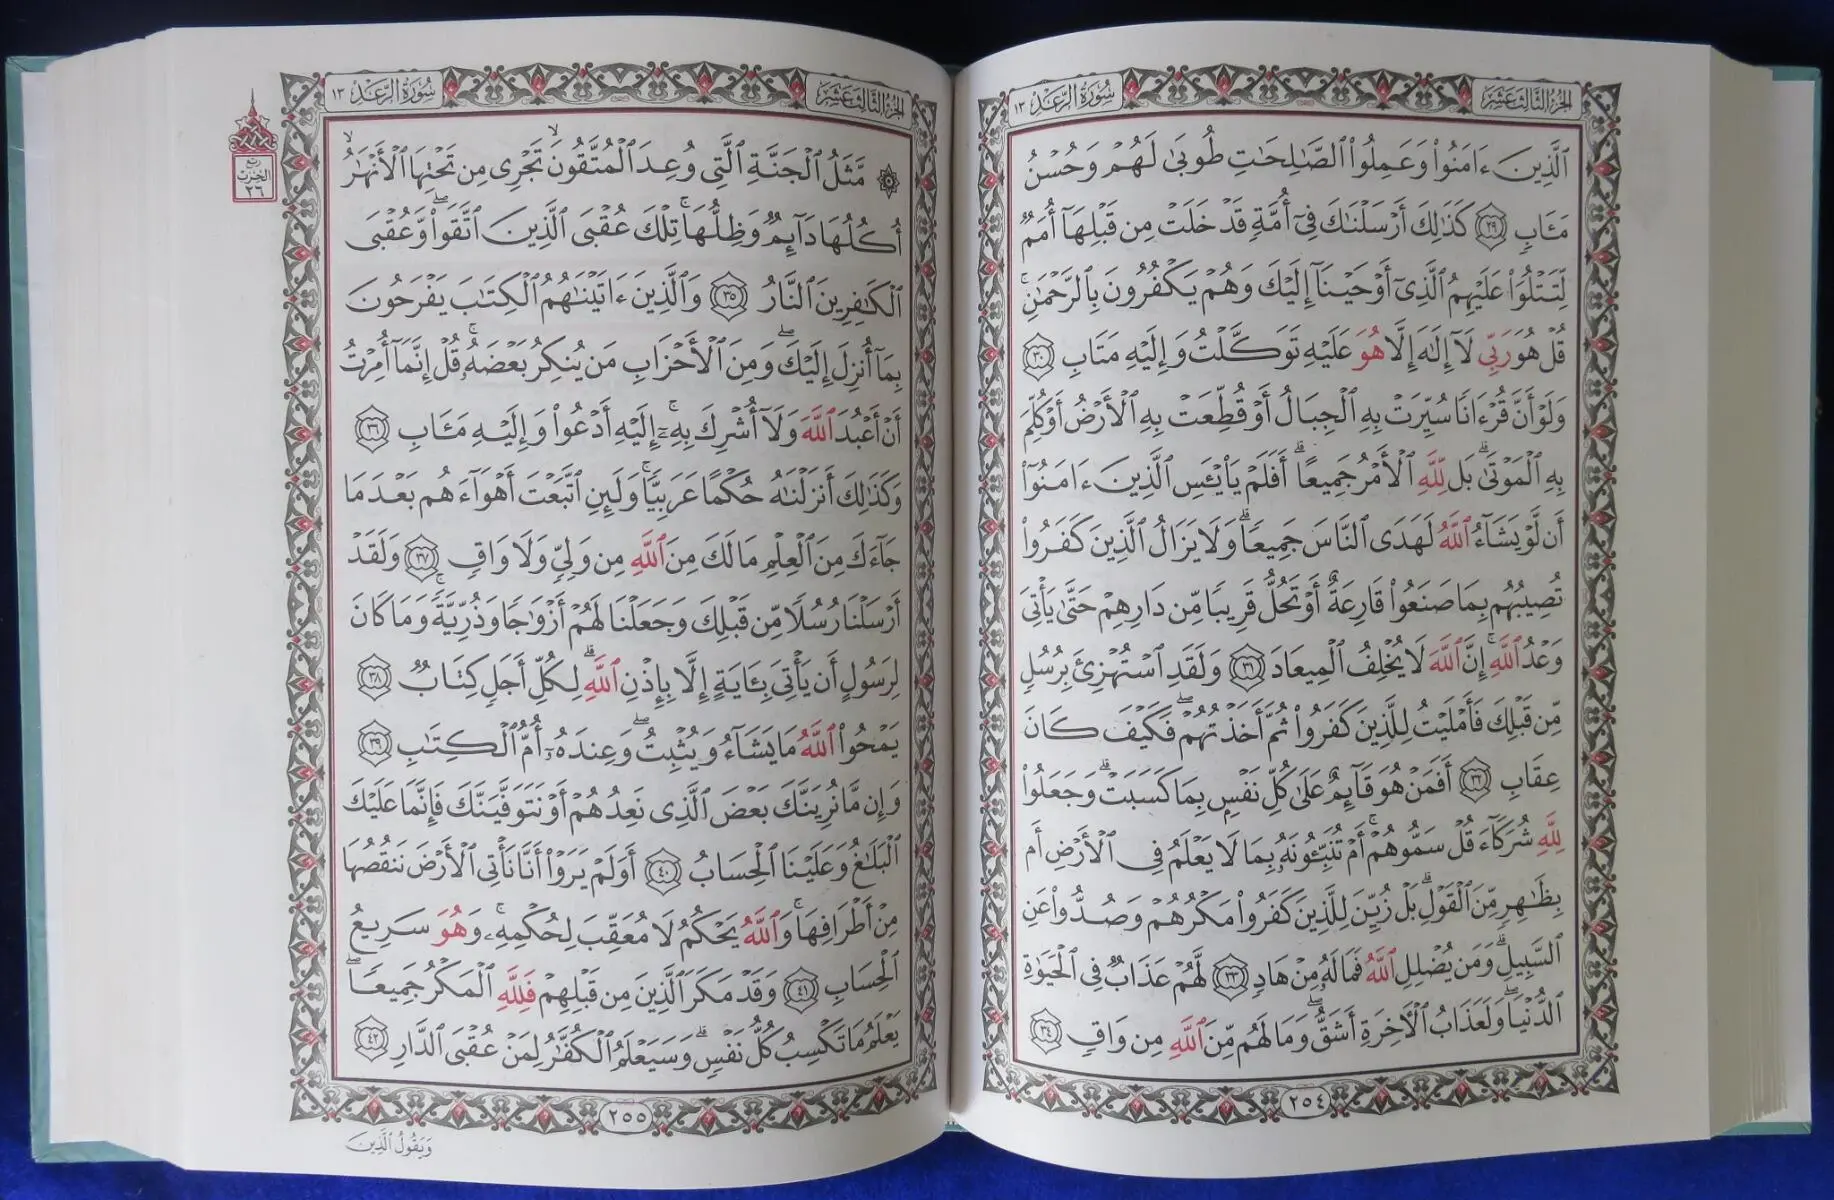 الجزء الثالث عشر
سورة الرعد ١٣
ٱلَّذِينَ ءَامَنُوا۟ وَعَمِلُوا۟ ٱلصَّٰلِحَٰتِ طُوبَىٰ لَهُمْ وَحُسْنُ
مَـَٔابٍ ٢٩ كَذَٰلِكَ أَرْسَلْنَٰكَ فِىٓ أُمَّةٍ قَدْ خَلَتْ مِن قَبْلِهَآ أُمَمٌ
لِّتَتْلُوَا۟ عَلَيْهِمُ ٱلَّذِىٓ أَوْحَيْنَآ إِلَيْكَ وَهُمْ يَكْفُرُونَ بِٱلرَّحْمَٰنِ ۚ
قُلْ هُوَ رَبِّى لَآ إِلَٰهَ إِلَّا هُوَ عَلَيْهِ تَوَكَّلْتُ وَإِلَيْهِ مَتَابِ ٣٠
وَلَوْ أَنَّ قُرْءَانًا سُيِّرَتْ بِهِ ٱلْجِبَالُ أَوْ قُطِّعَتْ بِهِ ٱلْأَرْضُ أَوْ كُلِّمَ
بِهِ ٱلْمَوْتَىٰ ۗ بَل لِّلَّهِ ٱلْأَمْرُ جَمِيعًا ۗ أَفَلَمْ يَا۟يْـَٔسِ ٱلَّذِينَ ءَامَنُوٓا۟
أَن لَّوْ يَشَآءُ ٱللَّهُ لَهَدَى ٱلنَّاسَ جَمِيعًا ۗ وَلَا يَزَالُ ٱلَّذِينَ كَفَرُوا۟
تُصِيبُهُم بِمَا صَنَعُوا۟ قَارِعَةٌ أَوْ تَحُلُّ قَرِيبًا مِّن دَارِهِمْ حَتَّىٰ يَأْتِىَ
وَعْدُ ٱللَّهِ ۚ إِنَّ ٱللَّهَ لَا يُخْلِفُ ٱلْمِيعَادَ ٣١ وَلَقَدِ ٱسْتُهْزِئَ بِرُسُلٍ
مِّن قَبْلِكَ فَأَمْلَيْتُ لِلَّذِينَ كَفَرُوا۟ ثُمَّ أَخَذْتُهُمْ ۖ فَكَيْفَ كَانَ
عِقَابِ ٣٢ أَفَمَنْ هُوَ قَآئِمٌ عَلَىٰ كُلِّ نَفْسٍۭ بِمَا كَسَبَتْ ۗ وَجَعَلُوا۟
لِلَّهِ شُرَكَآءَ قُلْ سَمُّوهُمْ ۚ أَمْ تُنَبِّـُٔونَهُۥ بِمَا لَا يَعْلَمُ فِى ٱلْأَرْضِ أَم
بِظَٰهِرٍ مِّنَ ٱلْقَوْلِ ۗ بَلْ زُيِّنَ لِلَّذِينَ كَفَرُوا۟ مَكْرُهُمْ وَصُدُّوا۟ عَنِ
ٱلسَّبِيلِ ۗ وَمَن يُضْلِلِ ٱللَّهُ فَمَا لَهُۥ مِنْ هَادٍ ٣٣ لَّهُمْ عَذَابٌ فِى ٱلْحَيَوٰةِ
ٱلدُّنْيَا ۖ وَلَعَذَابُ ٱلْـَٔاخِرَةِ أَشَقُّ ۖ وَمَا لَهُم مِّنَ ٱللَّهِ مِن وَاقٍ ٣٤
٢٥٤
الجزء الثالث عشر
سورة الرعد ١٣
ربع
الحزب
٢٦
۞ مَّثَلُ ٱلْجَنَّةِ ٱلَّتِى وُعِدَ ٱلْمُتَّقُونَ ۙ تَجْرِى مِن تَحْتِهَا ٱلْأَنْهَٰرُ ۙ
أُكُلُهَا دَآئِمٌ وَظِلُّهَا ۚ تِلْكَ عُقْبَى ٱلَّذِينَ ٱتَّقَوا۟ ۖ وَّعُقْبَى
ٱلْكَٰفِرِينَ ٱلنَّارُ ٣٥ وَٱلَّذِينَ ءَاتَيْنَٰهُمُ ٱلْكِتَٰبَ يَفْرَحُونَ
بِمَآ أُنزِلَ إِلَيْكَ ۖ وَمِنَ ٱلْأَحْزَابِ مَن يُنكِرُ بَعْضَهُۥ ۚ قُلْ إِنَّمَآ أُمِرْتُ
أَنْ أَعْبُدَ ٱللَّهَ وَلَآ أُشْرِكَ بِهِۦٓ ۚ إِلَيْهِ أَدْعُوا۟ وَإِلَيْهِ مَـَٔابِ ٣٦
وَكَذَٰلِكَ أَنزَلْنَٰهُ حُكْمًا عَرَبِيًّا ۚ وَلَئِنِ ٱتَّبَعْتَ أَهْوَآءَهُم بَعْدَمَا
جَآءَكَ مِنَ ٱلْعِلْمِ مَا لَكَ مِنَ ٱللَّهِ مِن وَلِىٍّ وَلَا وَاقٍ ٣٧ وَلَقَدْ
أَرْسَلْنَا رُسُلًا مِّن قَبْلِكَ وَجَعَلْنَا لَهُمْ أَزْوَٰجًا وَذُرِّيَّةً ۚ وَمَا كَانَ
لِرَسُولٍ أَن يَأْتِىَ بِـَٔايَةٍ إِلَّا بِإِذْنِ ٱللَّهِ ۗ لِكُلِّ أَجَلٍ كِتَابٌ ٣٨
يَمْحُوا۟ ٱللَّهُ مَا يَشَآءُ وَيُثْبِتُ ۖ وَعِندَهُۥٓ أُمُّ ٱلْكِتَٰبِ ٣٩
وَإِن مَّا نُرِيَنَّكَ بَعْضَ ٱلَّذِى نَعِدُهُمْ أَوْ نَتَوَفَّيَنَّكَ فَإِنَّمَا عَلَيْكَ
ٱلْبَلَٰغُ وَعَلَيْنَا ٱلْحِسَابُ ٤٠ أَوَلَمْ يَرَوْا۟ أَنَّا نَأْتِى ٱلْأَرْضَ نَنقُصُهَا
مِنْ أَطْرَافِهَا ۚ وَٱللَّهُ يَحْكُمُ لَا مُعَقِّبَ لِحُكْمِهِۦ ۚ وَهُوَ سَرِيعُ
ٱلْحِسَابِ ٤١ وَقَدْ مَكَرَ ٱلَّذِينَ مِن قَبْلِهِمْ فَلِلَّهِ ٱلْمَكْرُ جَمِيعًا ۖ
يَعْلَمُ مَا تَكْسِبُ كُلُّ نَفْسٍ ۗ وَسَيَعْلَمُ ٱلْكُفَّٰرُ لِمَنْ عُقْبَى ٱلدَّارِ ٤٢
٢٥٥
وَيَقُولُ ٱلَّذِينَ